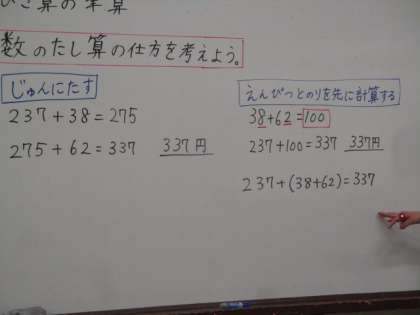 ひき算の筆算
数のたし算の仕方を考えよう。
じゅんにたす
237+38=275
275+62=337 337円
えんぴつとのりを先に計算する
38+62=100
237+100=337 337円
237+(38+62)=337